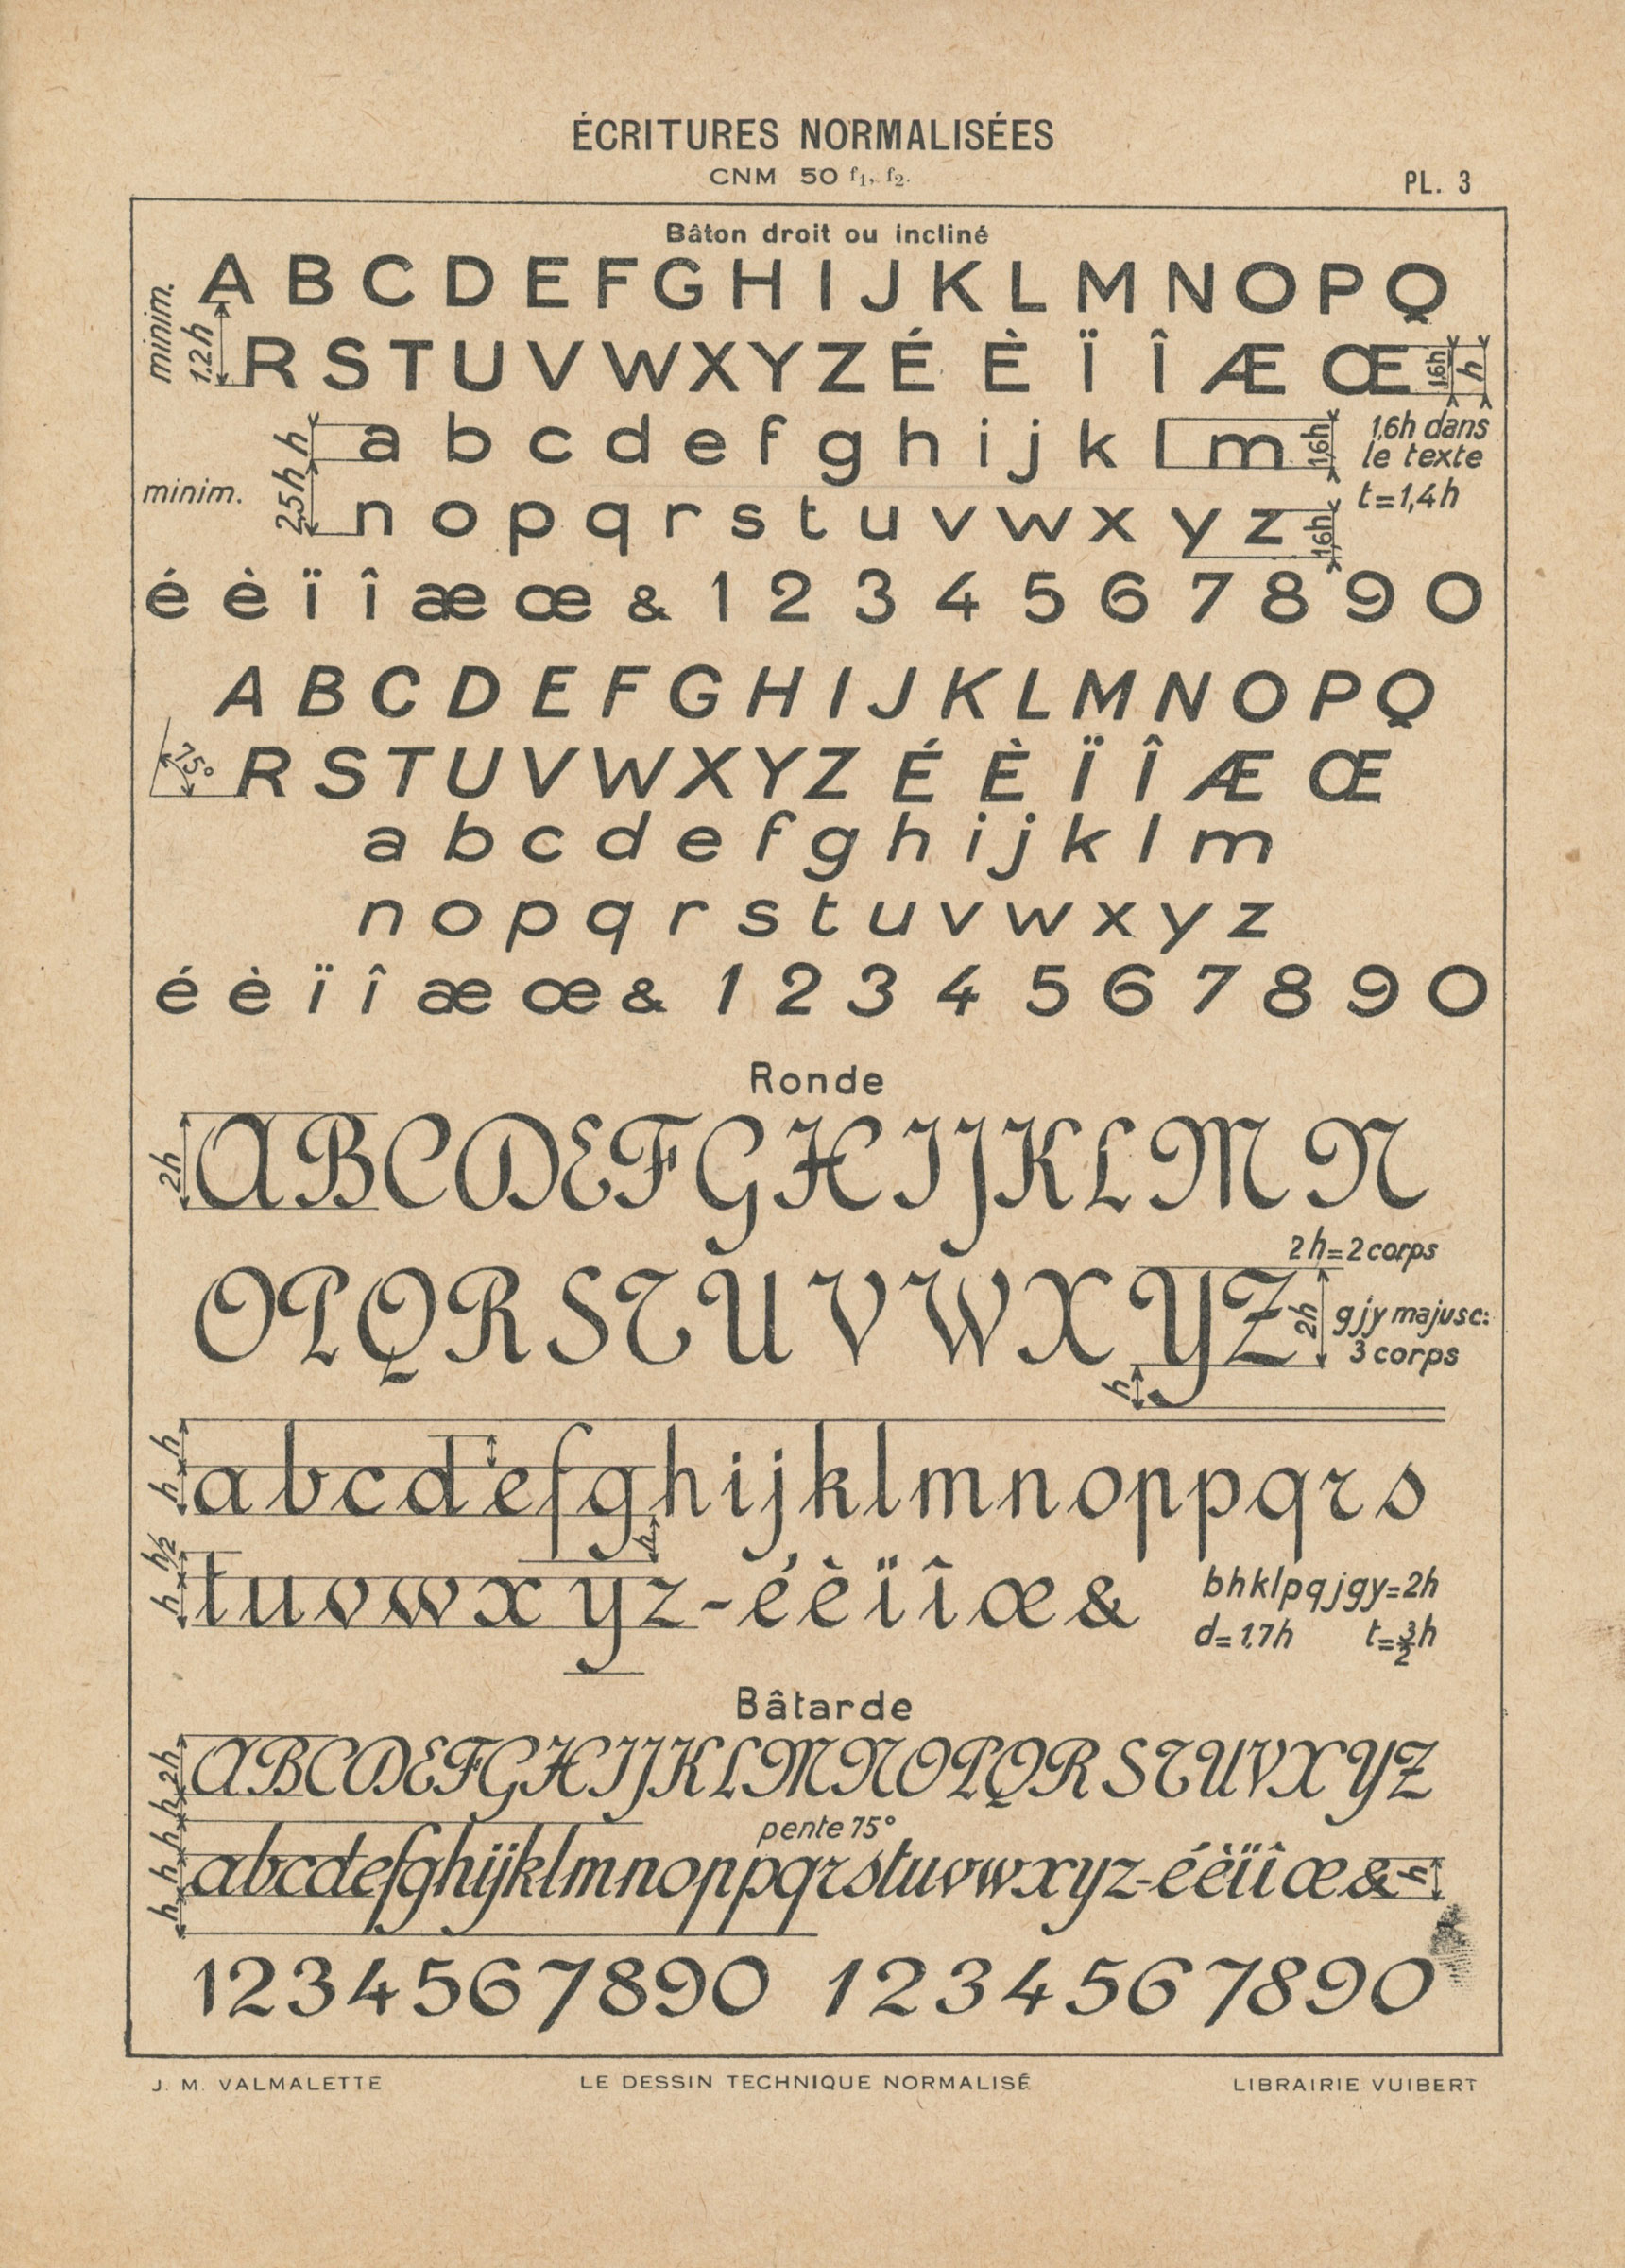 ÉCRITURES NORMALISÉES
CNM 50 f1, f2.
PL. 3
Bâton droit ou incliné
A B C D E F G H I J K L M N O P Q
minim.
1.2h
R S T U V W X Y Z É È Ï Î Æ Œ
1,6h
h
h
a b c d e f g h i j k l m
1,6h
1,6h dans
le texte
t=1,4h
minim.
2,5h
n o p q r s t u v w x y z
1,6h
é è ï î æ œ & 1 2 3 4 5 6 7 8 9 0
A B C D E F G H I J K L M N O P Q
75°
R S T U V W X Y Z É È Ï Î Æ Œ
a b c d e f g h i j k l m
n o p q r s t u v w x y z
é è ï î æ œ & 1 2 3 4 5 6 7 8 9 0
Ronde
2h
A B C D E F G H I J K L M N
2h=2corps
O P Q R S T U V W X Y Z
2h
gjy majusc:
3 corps
h
h h
a b c d e f g h i j k l m n o p p q r s
h
h h/2
t u v w x y z - é è ï î œ &
bhklpqjgy=2h
d=1,7h t=3/2h
Bâtarde
2h
A B C D E F G H I J K L M N O P Q R S T U V X Y Z
h
pente 75°
h h h
a b c d e f g h i j k l m n o p p q r s t u v w x y z - é è ï î œ &
h
1 2 3 4 5 6 7 8 9 0 1 2 3 4 5 6 7 8 9 0
J. M. VALMALETTE
LE DESSIN TECHNIQUE NORMALISÉ
LIBRAIRIE VUIBERT